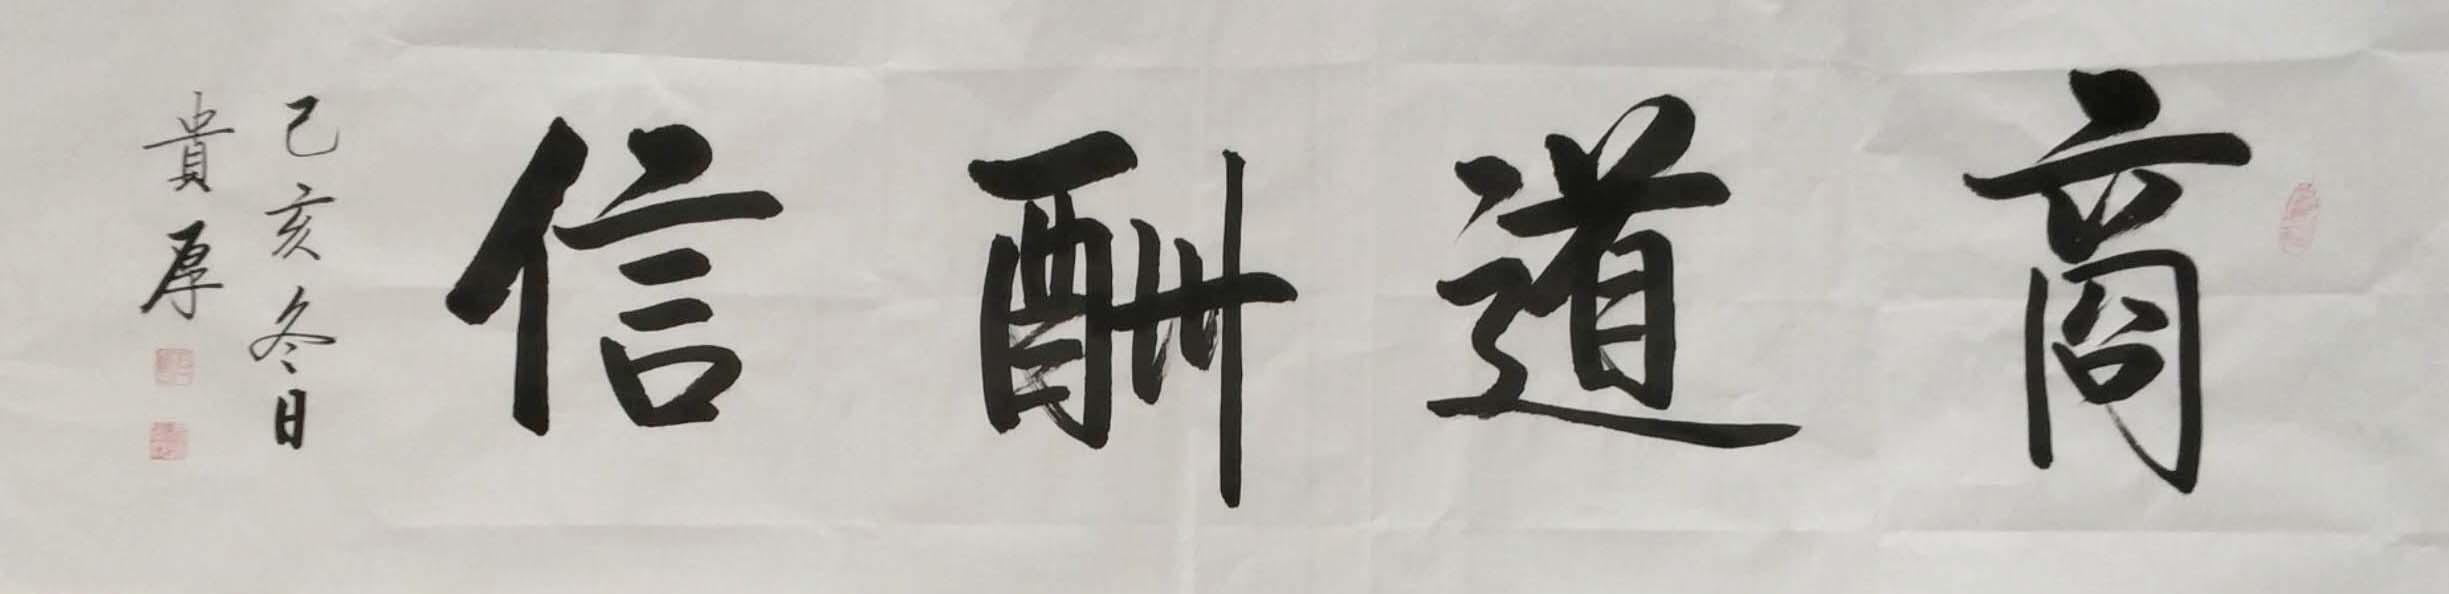 商道酬信
己亥冬日
貴厚